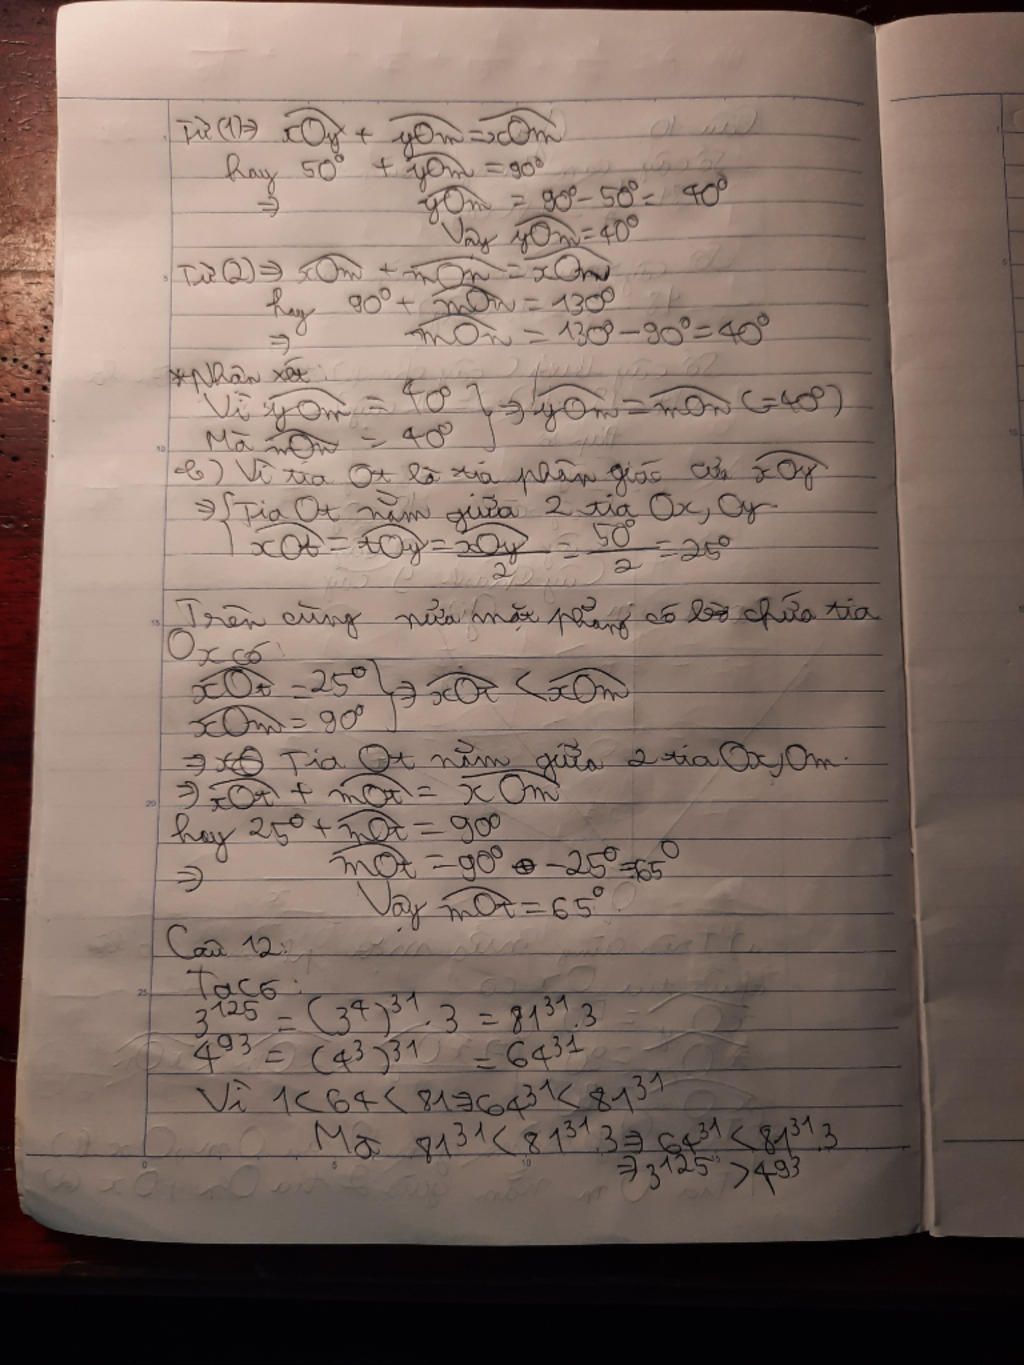 Từ (1) ⇒ xOy + yOm = xOm
hay 50° + yOm = 90°
⇒ yOm = 90° - 50° = 40°
Vậy yOm = 40°
Từ (2) ⇒ xOm + mOn = xOm
hay 90° + mOn = 130°
⇒ mOn = 130° - 90° = 40°
* Nhận xét:
Vì yOm = 40° } ⇒ yOm = mOn (= 40°)
Mà mOn = 40°
b) Vì tia Ot là tia phân giác của xOy
⇒ { Tia Ot nằm giữa 2 tia Ox, Oy
xOt = tOy = xOy/2 = 50°/2 = 25°
Trên cùng nửa mặt phẳng có bờ chứa tia
Ox có:
xOt = 25° } ⇒ xOt < xOm
xOm = 90°
⇒ Tia Ot nằm giữa 2 tia Ox, Om.
⇒ xOt + mOt = xOm
hay 25° + mOt = 90°
⇒ mOt = 90° - 25° = 65°
Vậy mOt = 65°.
Câu 12:
Ta có:
3¹²⁵ = (3⁴)³¹ . 3 = 81³¹ . 3
4⁹³ = (4³)³¹ = 64³¹
Vì 1 < 64 < 81 ⇒ 64³¹ < 81³¹
Mà 81³¹ < 81³¹ . 3 ⇒ 64³¹ < 81³¹ . 3
⇒ 3¹²⁵ > 4⁹³